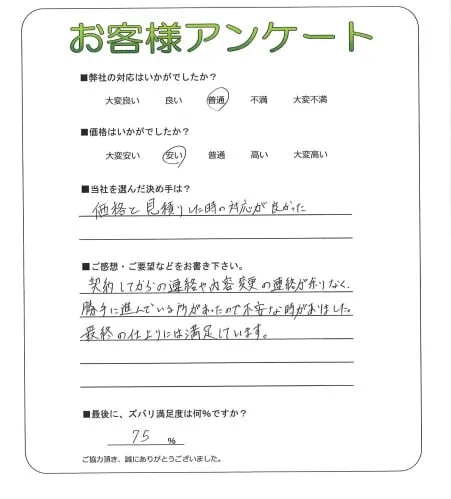 お客様アンケート
■弊社の対応はいかがでしたか?
大変良い 良い 普通 不満 大変不満
■価格はいかがでしたか?
大変安い 安い 普通 高い 大変高い
■当社を選んだ決め手は?
価格と見積りした時の対応が良かった
■ご感想・ご要望などをお書き下さい。
契約してからの連絡や内容変更の連絡が余りなく、
勝手に進んでいる所があったので不安な時がありました。
最終の仕上りには満足しています。
■最後に、ズバリ満足度は何%ですか?
75 %
ご協力頂き、誠にありがとうございました。